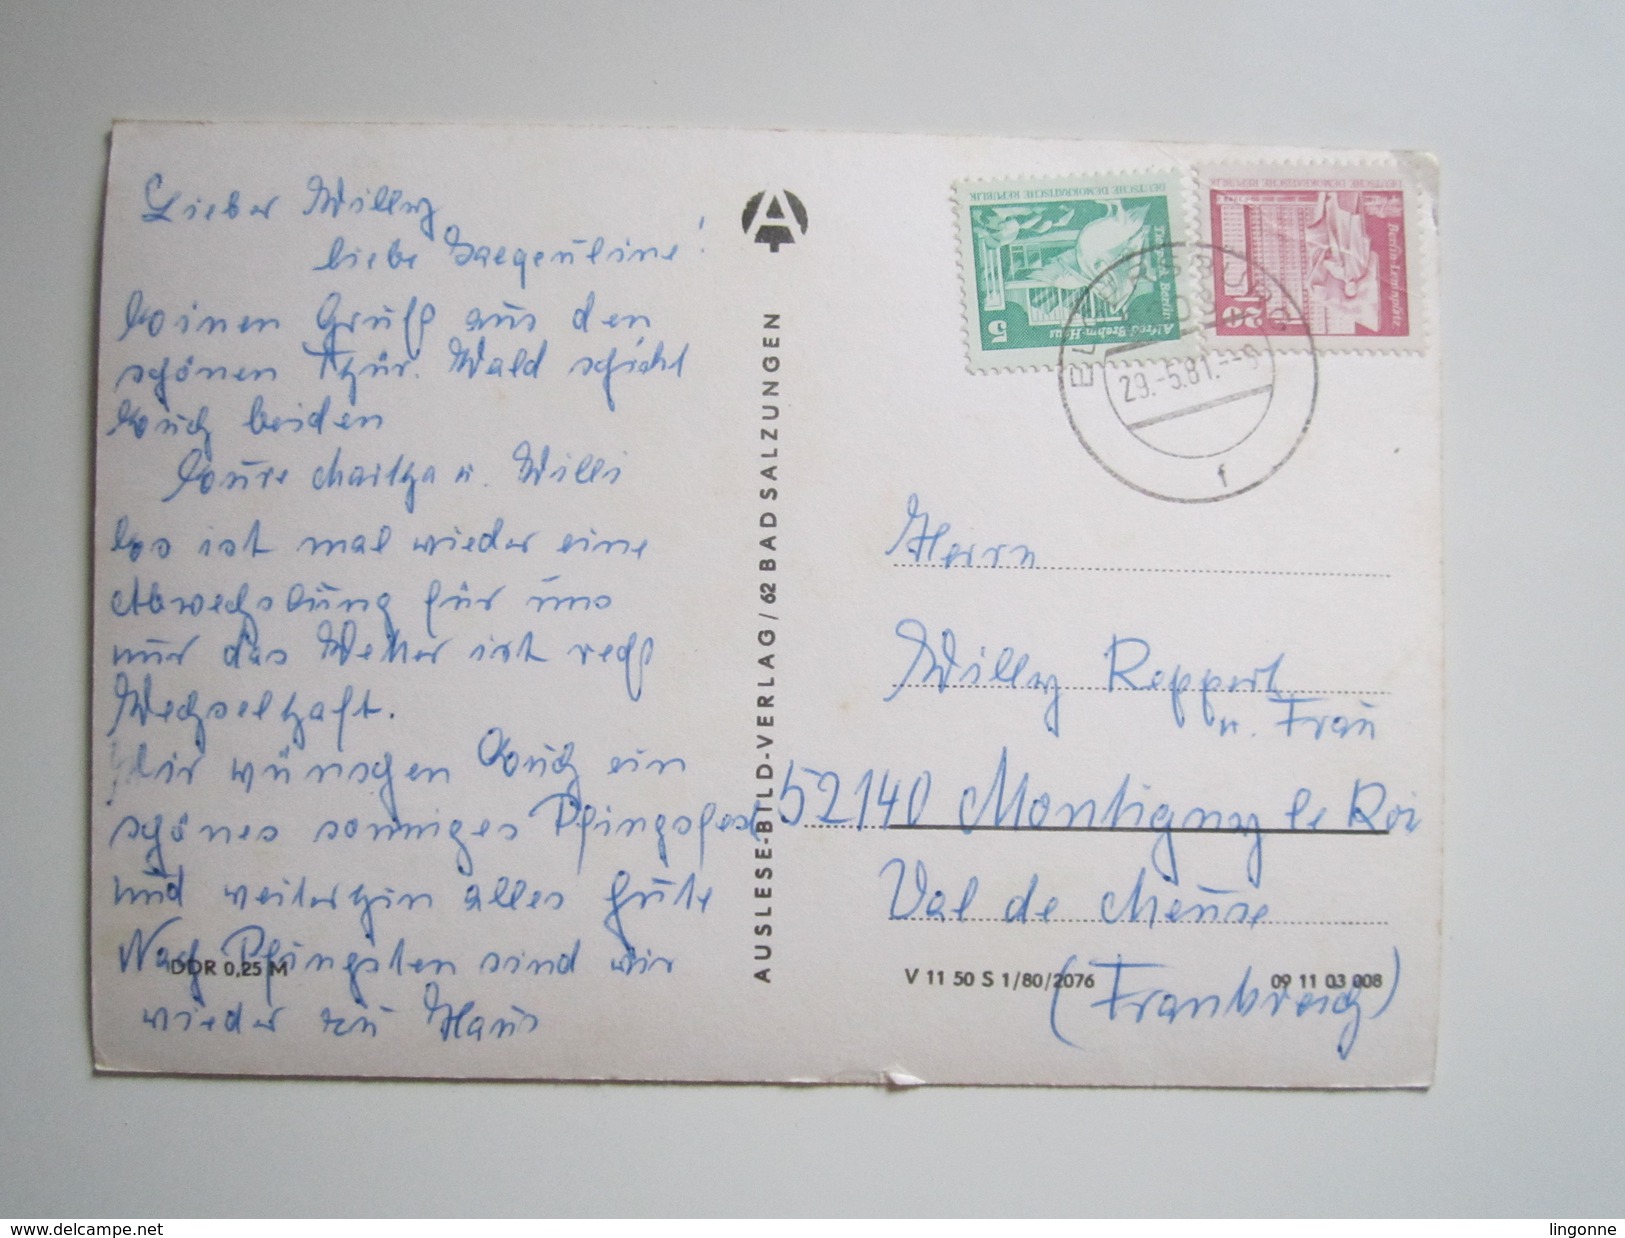 Lieber Willy
liebe Jaequeuline!
Einen Gruß aus den
schönen Thür. Wald schickt
Euch beiden
Eure Martha u. Willi
Es ist mal wieder eine
Abwechslung für uns
nur das Wetter ist rech
Wechselhaft.
Wir wünschen Euch ein
schönes sonniges Pfingsfest
und weiterhin alles Gute
Nach Pfingsten sind wir
wieder zu Haus
DDR 0,25 M
AUSLESE-BILD-VERLAG / 62 BAD SALZUNGEN
A
DEUTSCHE DEMOKRATISCHE REPUBLIK
Tierpark Berlin
Alfred-Brehm-Haus
5
DEUTSCHE DEMOKRATISCHE REPUBLIK
Berlin-Leninplatz
20
29.-5.81.--9
f
Herrn
Willy Reppert
u. Frau
52140 Montigny le Roi
Val de Meuse
(Frankreich)
V 11 50 S 1/80/2076
09 11 03 008
www.delcampe.net
lingonne